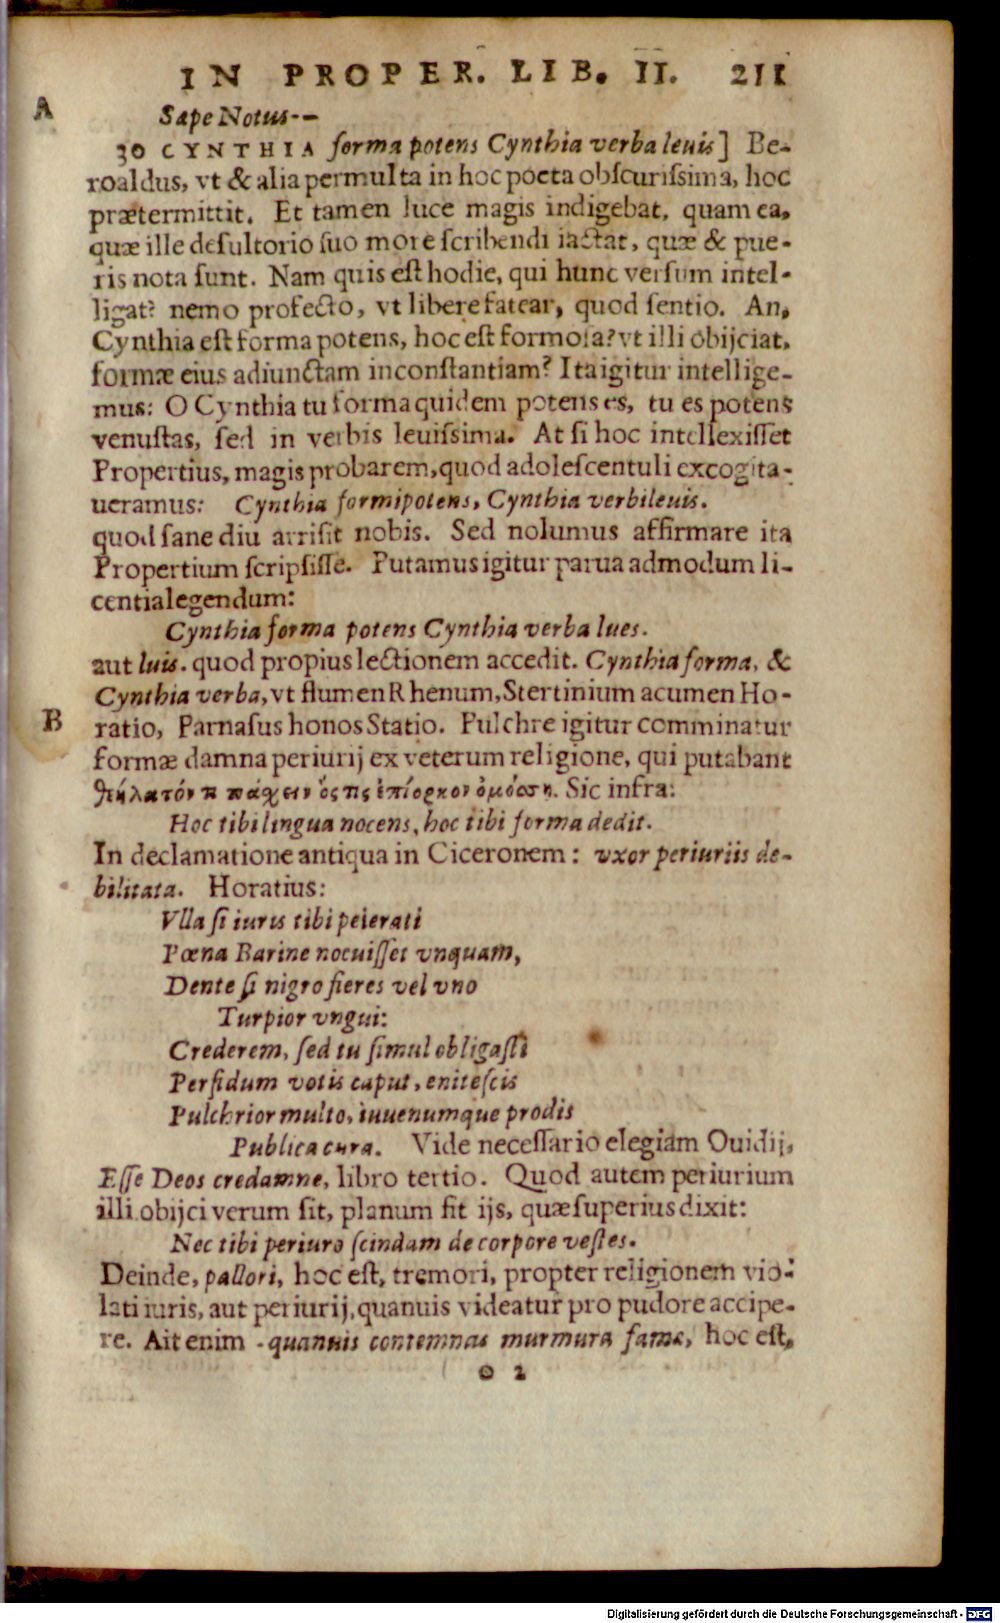 IN PROPER. LIB. II. 211
A
Sæpe Notus--
30 CYNTHIA forma potens Cynthia verba leuis] Be-
roaldus, vt & alia permulta in hoc poeta obscurissima, hoc
prætermittit. Et tamen luce magis indigebat, quam ea,
quæ ille desultorio suo more scribendi iactat, quæ & pue-
ris nota sunt. Nam quis est hodie, qui hunc versum intel-
ligat? nemo profecto, vt libere fatear, quod sentio. An,
Cynthia est forma potens, hoc est formosa? vt illi obijciat,
formæ eius adiunctam inconstantiam? Ita igitur intellige-
mus: O Cynthia tu forma quidem potens es, tu es potens
venustas, sed in verbis leuissima. At si hoc intellexisset
Propertius, magis probarem, quod adolescentuli excogita-
ueramus: Cynthia formipotens, Cynthia verbileuis.
quod sane diu arrisit nobis. Sed nolumus affirmare ita
Propertium scripsisse. Putamus igitur parua admodum li-
centia legendum:
Cynthia forma potens Cynthia verba lues.
aut luis. quod propius lectionem accedit. Cynthia forma, &
Cynthia verba, vt flumen Rhenum, Stertinium acumen Ho-
B
ratio, Parnasus honos Statio. Pulchre igitur comminatur
formæ damna periurij ex veterum religione, qui putabant
θεήλατόν τι πάχειν ὅςτις ἐπίορκον ὀμόσῃ. Sic infra:
Hoc tibi lingua nocens, hoc tibi forma dedit.
In declamatione antiqua in Ciceronem: vxor periuriis de-
bilitata. Horatius:
Vlla si iuris tibi peierati
Pœna Barine nocuisset vnquam,
Dente si nigro fieres vel vno
Turpior vngui:
Crederem, sed tu simul obligasti
Perfidum votis caput, enitescis
Pulchrior multo, iuuenumque prodis
Publica cura. Vide necessario elegiam Ouidij,
Esse Deos credamne, libro tertio. Quod autem periurium
illi obijci verum sit, planum fit ijs, quæ superius dixit:
Nec tibi periuro scindam de corpore vestes.
Deinde, pallori, hoc est, tremori, propter religionem vio-
lati iuris, aut periurij, quanuis videatur pro pudore accipe-
re. Ait enim quanuis contemnas murmura famæ, hoc est,
O 2
Digitalisierung gefördert durch die Deutsche Forschungsgemeinschaft - DFG